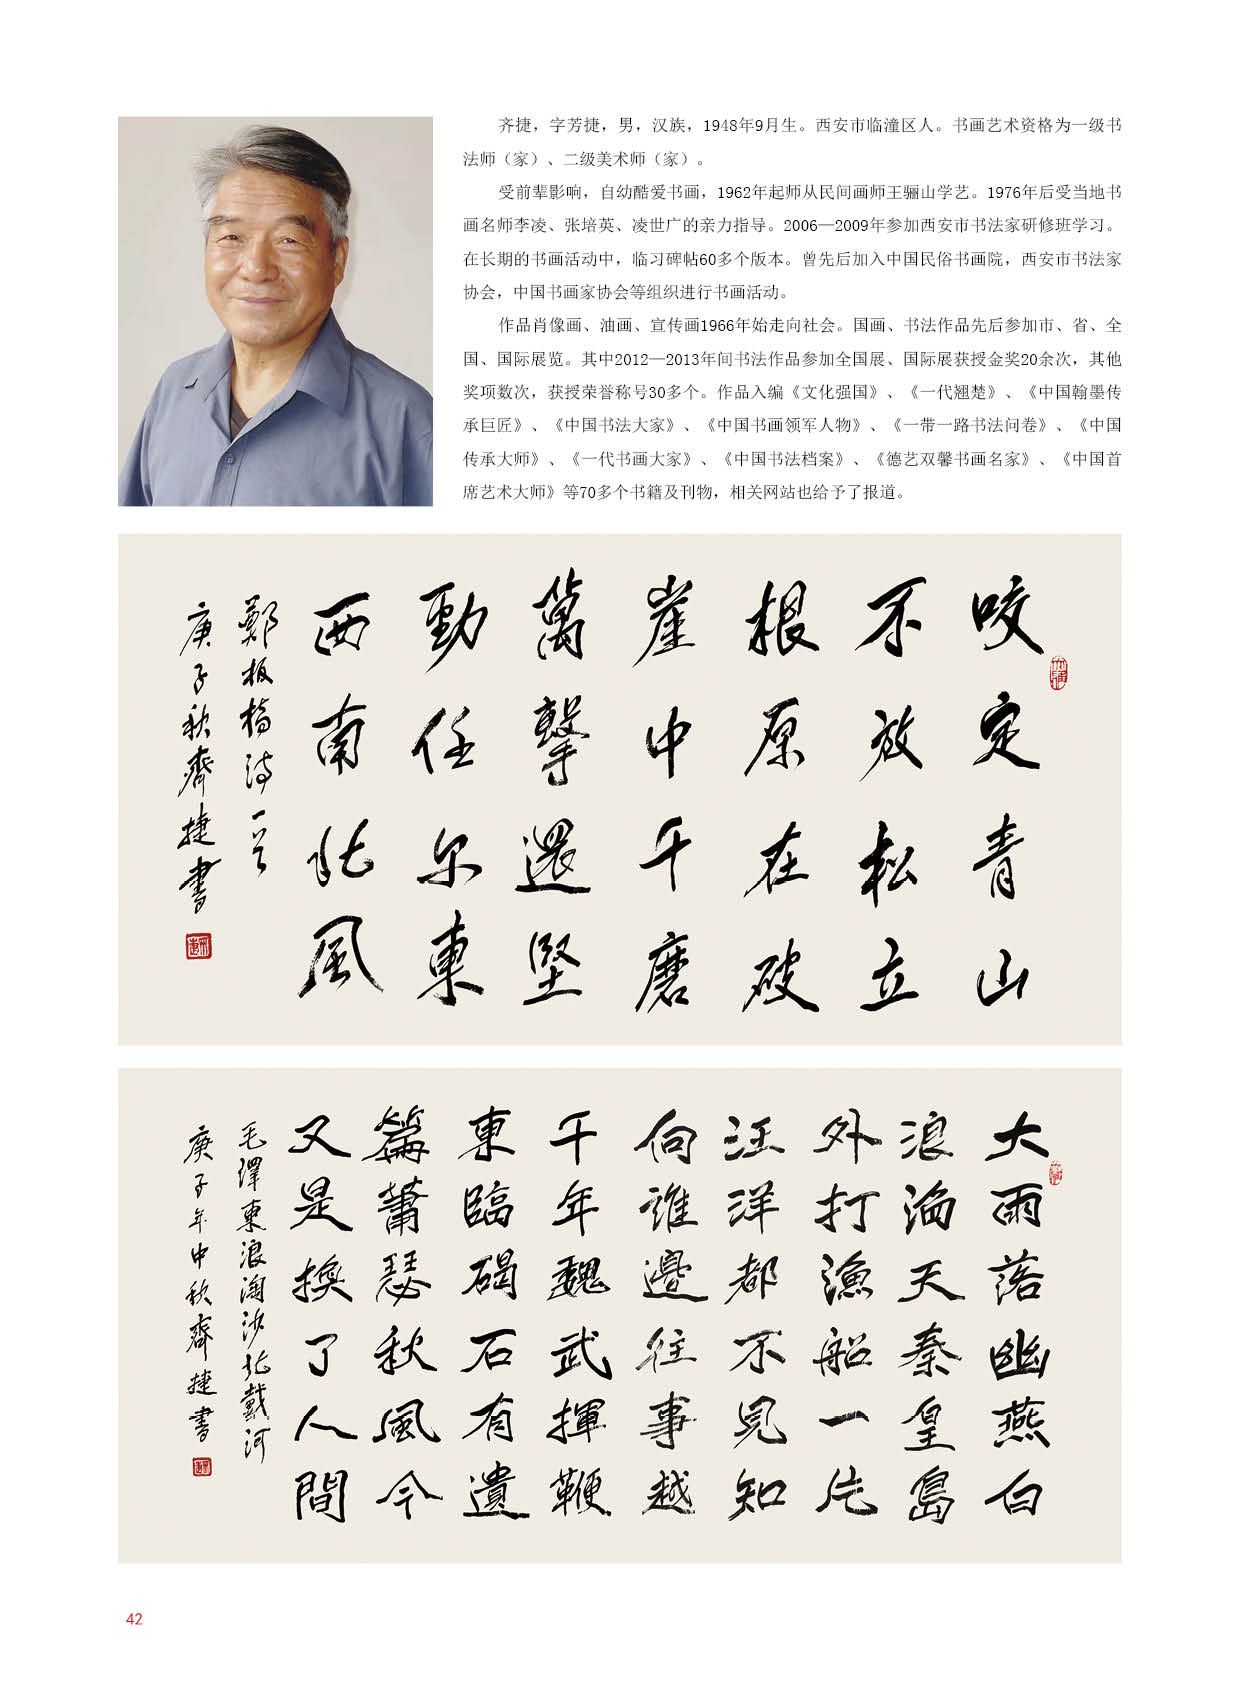 齐捷，字芳捷，男，汉族，1948年9月生。西安市临潼区人。书画艺术资格为一级书
法师（家）、二级美术师（家）。
受前辈影响，自幼酷爱书画，1962年起师从民间画师王骊山学艺。1976年后受当地书
画名师李凌、张培英、凌世广的亲力指导。2006—2009年参加西安市书法家研修班学习。
在长期的书画活动中，临习碑帖60多个版本。曾先后加入中国民俗书画院，西安市书法家
协会，中国书画家协会等组织进行书画活动。
作品肖像画、油画、宣传画1966年始走向社会。国画、书法作品先后参加市、省、全
国、国际展览。其中2012—2013年间书法作品参加全国展、国际展获授金奖20余次，其他
奖项数次，获授荣誉称号30多个。作品入编《文化强国》、《一代翘楚》、《中国翰墨传
承巨匠》、《中国书法大家》、《中国书画领军人物》、《一带一路书法问卷》、《中国
传承大师》、《一代书画大家》、《中国书法档案》、《德艺双馨书画名家》、《中国首
席艺术大师》等70多个书籍及刊物，相关网站也给予了报道。
咬定青山
不放松立
根原在破
崖中千磨
萬擊還堅
勁任尔東
西南北風
鄭板橋诗一首
庚子秋齊捷書
大雨落幽燕白
浪滔天秦皇島
外打漁船一片
汪洋都不見知
向誰邊往事越
千年魏武揮鞭
東臨碣石有遺
篇蕭瑟秋風今
又是換了人間
毛澤東浪淘沙北戴河
庚子年中秋齊捷書
42